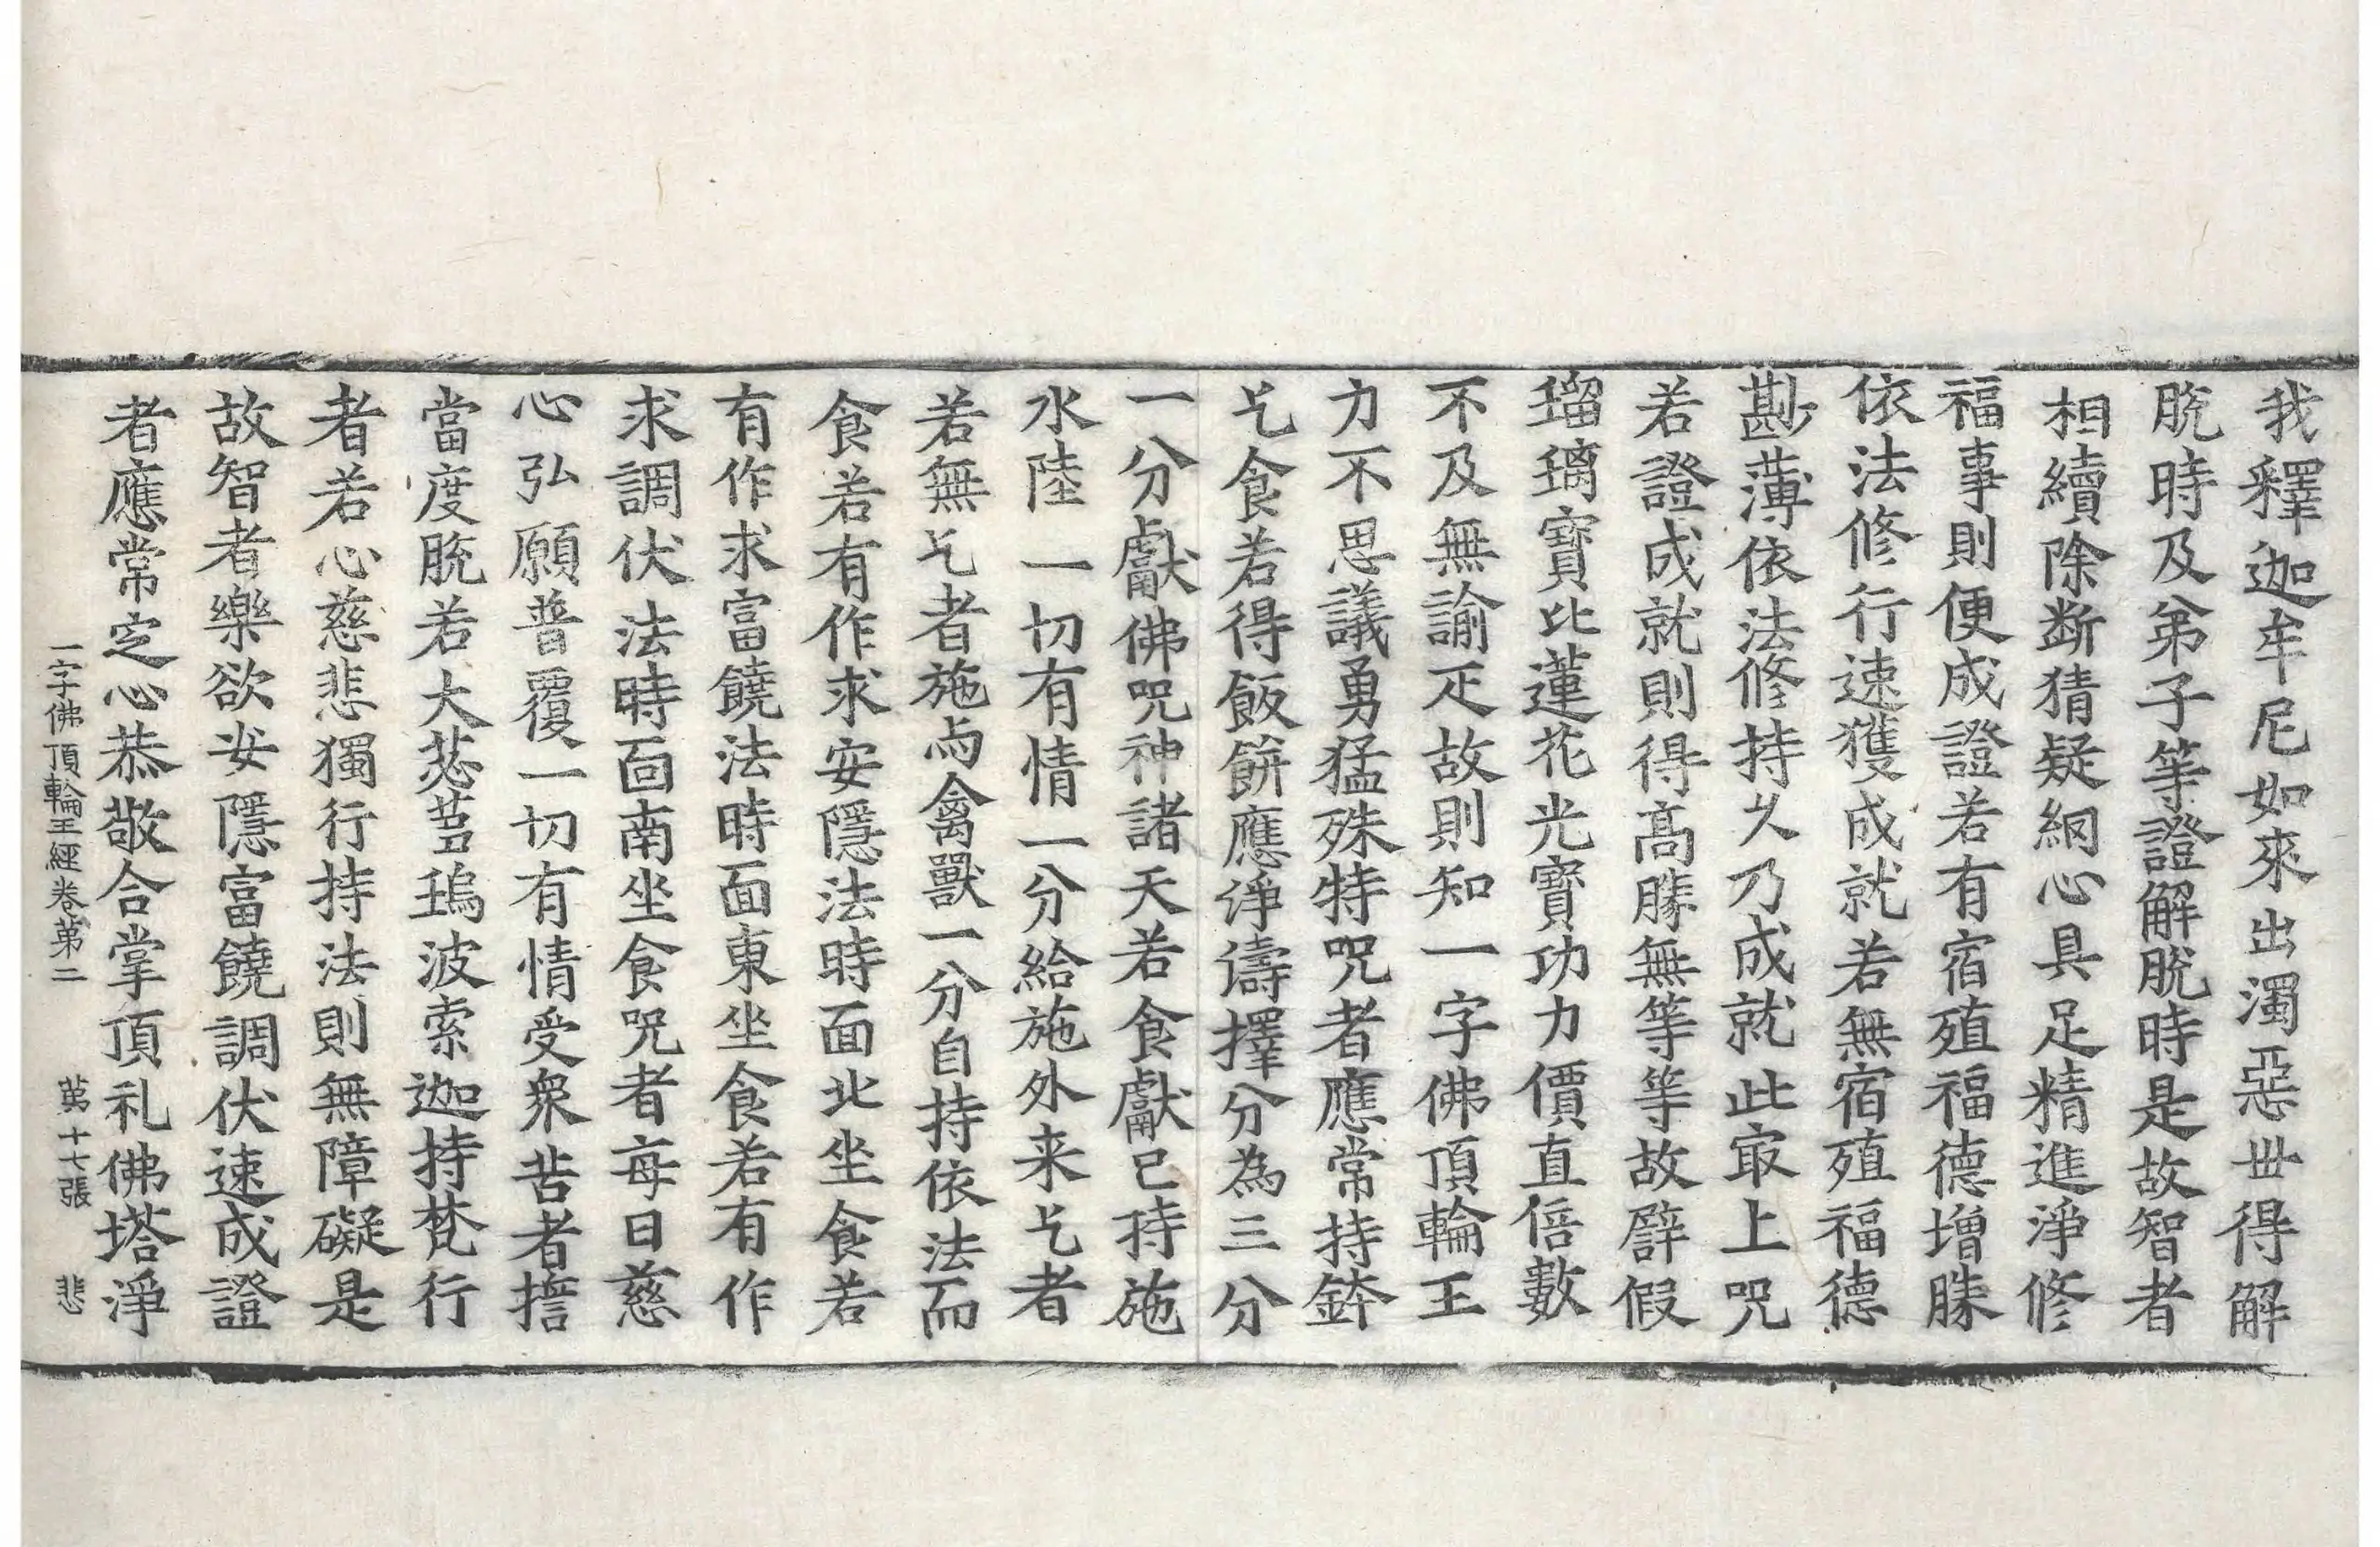 我釋迦牟尼如來出濁惡世得解
脫時及弟子等證解脫時是故智者
相續除斷猜疑網心具足精進淨修
福事則便成證若有宿殖福德增勝
依法修行速獲成就若無宿殖福德
尠薄依法修持久乃成就此㝡上呪
若證成就則得高勝無等等故譬假
瑠璃寶比蓮花光寶功力價直倍數
不及無諭疋故則知一字佛頂輪王
力不思議勇猛殊特呪者應常持鉢
乞食若得飯餅應淨濤擇分為三分
一分獻佛呪神諸天若食獻已持施
水陸一切有情一分給施外来乞者
若無乞者施与禽獸一分自持依法而
食若有作求安隱法時面北坐食若
有作求富饒法時面東坐食若有作
求調伏法時面南坐食呪者每日慈
心弘願普覆一切有情受衆苦者擔
當度脫若大苾蒭塢波索迦持梵行
者若心慈悲獨行持法則無障礙是
故智者樂欲安隱富饒調伏速成證
者應常定心恭敬合掌頂礼佛塔淨
一字佛頂輪王經卷第二 第十七張 悲